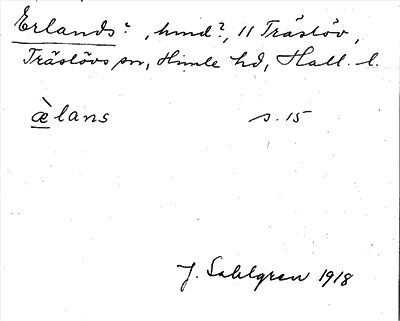 Erlands?, hmd?, 11 Träslöv,
Träslövs sn, Himle hd, Hall. l.
æ̀lans s. 15
J. Sahlgren 1918